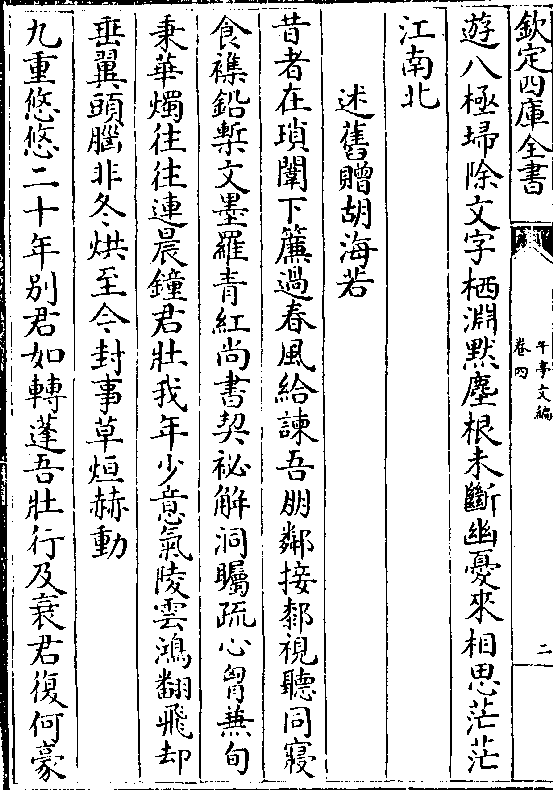 欽定四庫全書
午亭文編
卷四
二
遊八極埽除文字栖淵默塵根未斷幽憂來相思茫茫
江南北
述舊贈胡海若
昔者在瑣闈下簾過春風給諫吾朋鄰接鄰視聽同寢
食襍鉛槧文墨羅青紅尚書契祕解洞矚疏心胷兼旬
秉華燭往往連晨鐘君壯我年少意氣陵雲鴻翻飛却
垂翼頭腦非冬烘至今封事草烜赫動
九重悠悠二十年別君如轉蓬吾壯行及衰君復何豪